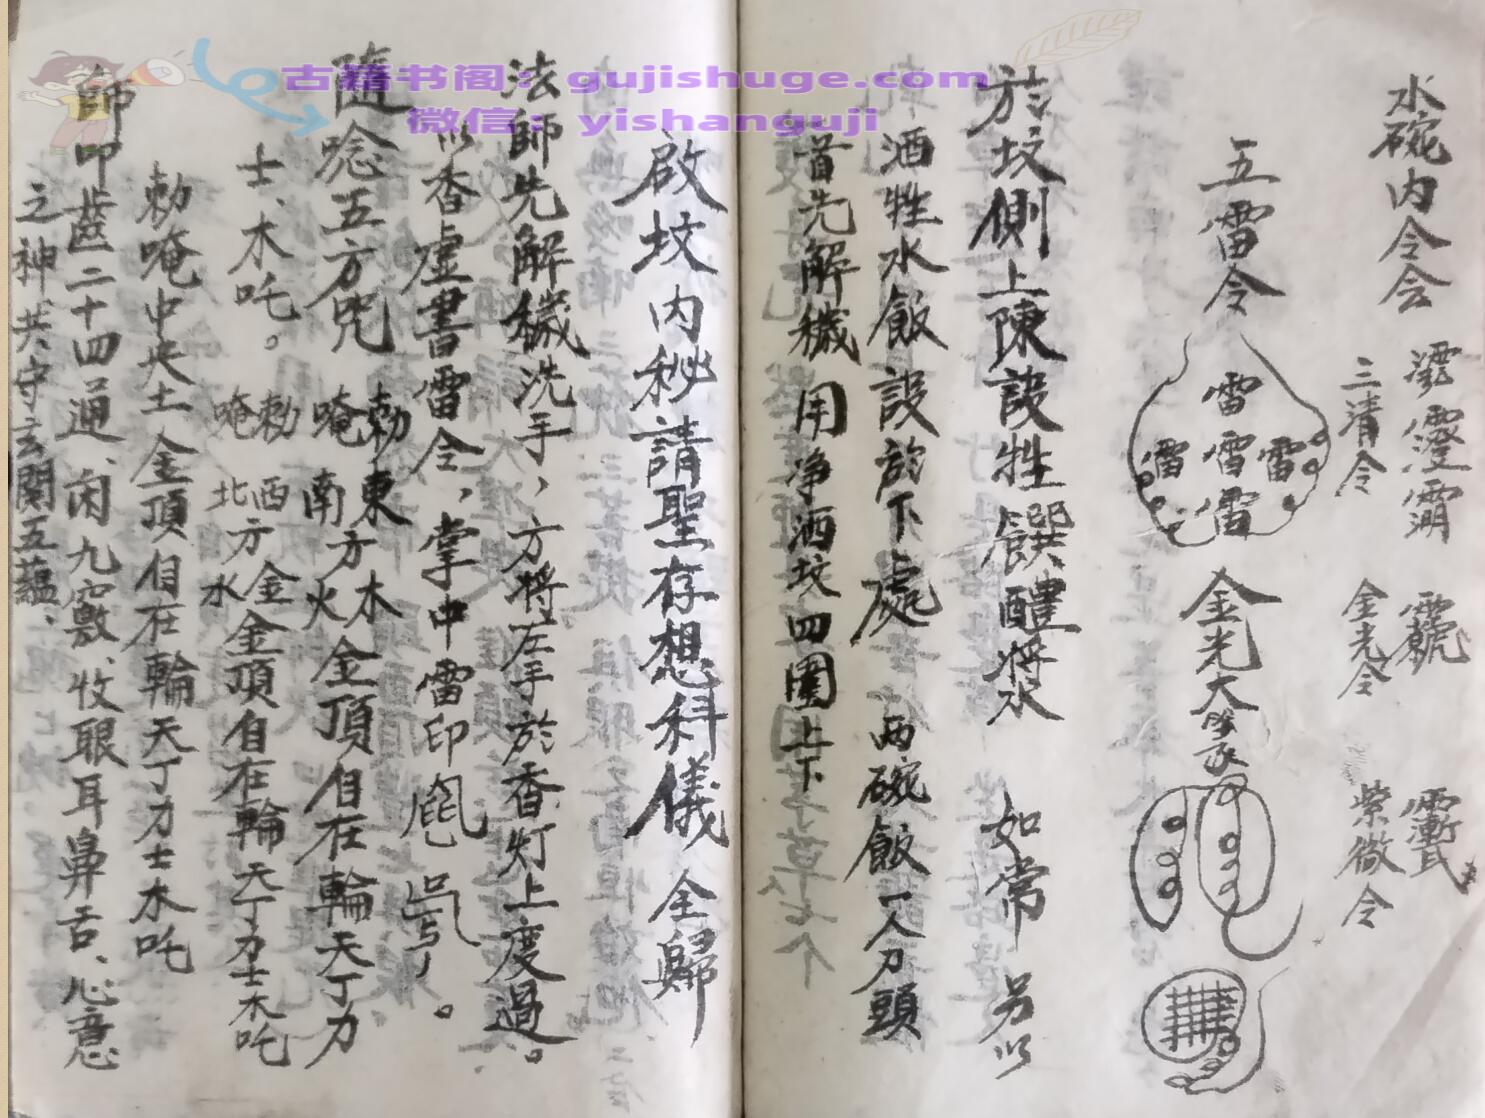 古籍书阁：gujishuge.com
微信：yishanguji
水碗内令会
三清令
金光令
紫微令
五雷令
雷
雷 雷 雷
雷
金光大
於坟側上陳設牲饌醴將水 如常 另以
酒牲水飯設於下處 兩碗飯一人刀頭
首先解穢 用净洒坟四圍上下
啟坟内秘請聖存想科儀 全歸
法師先解穢洗手，方將左手於香灯上度過。
以香虚書雷令，掌中雷印
隨唸五方咒
勅唵 東南方 木火 金頂自在輪天丁力
士、木吒。
勅唵 西北方 金水 金頂自在輪天丁力士木吒
勅唵中央土金頂自在輪天丁力士木吒
師叩齒二十四通、闭九竅、收眼耳鼻舌、心意
之神共守玄關五蘊、